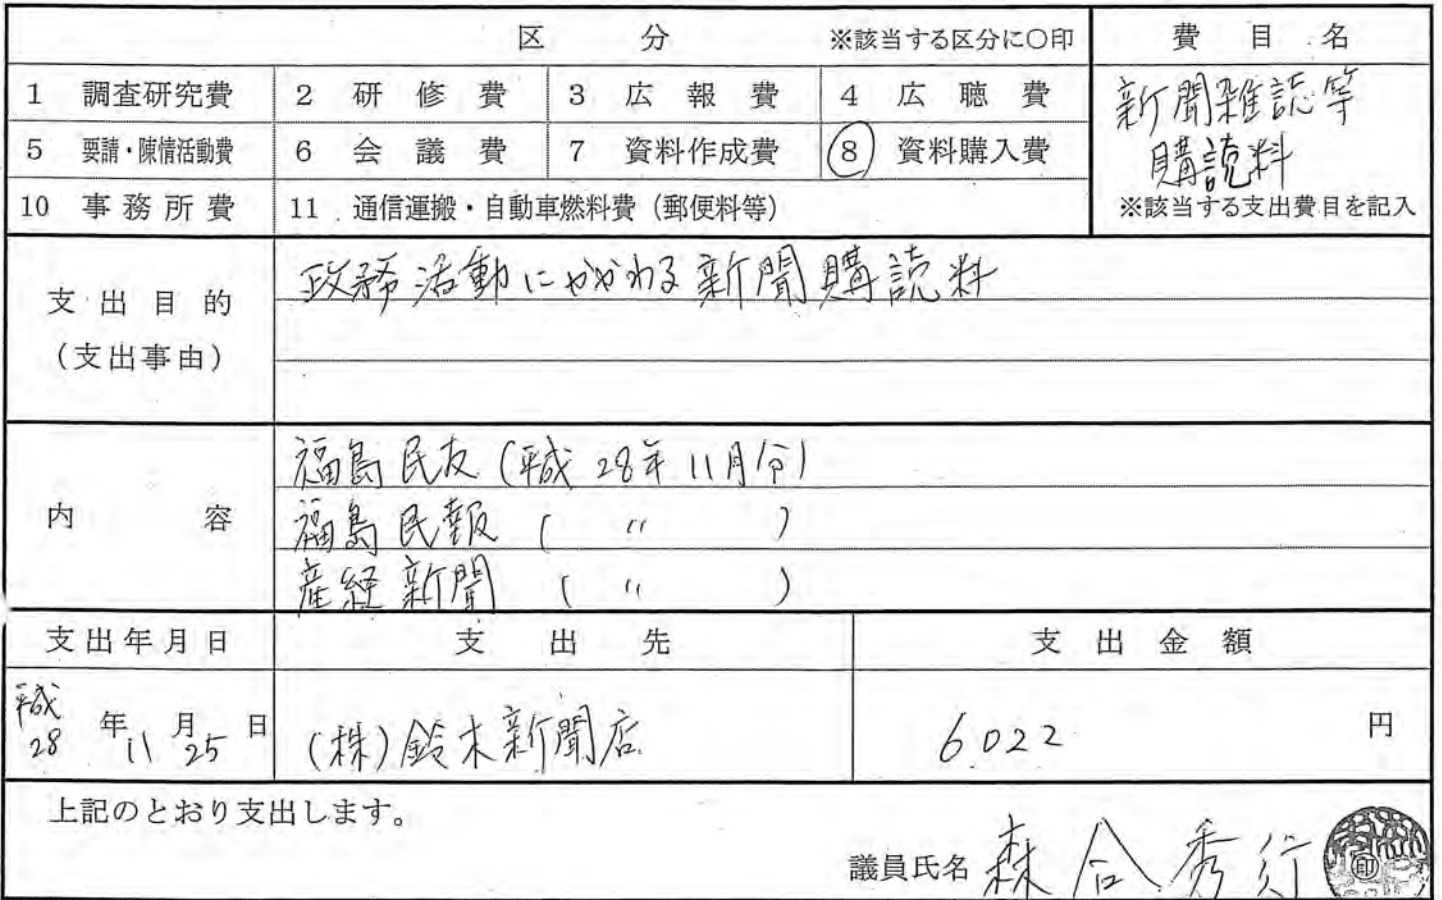 区 分 ※該当する区分に〇印 費 目 名
1 調査研究費 2 研 修 費 3 広 報 費 4 広 聴 費
5 要請・陳情活動費 6 会 議 費 7 資料作成費 8 資料購入費
10 事 務 所 費 11 通信運搬・自動車燃料費(郵便料等)
新聞雑誌等
購読料
※該当する支出費目を記入
支 出 目 的
(支出事由)
政務活動にかかわる新聞購読料
内 容
福島民友(平成28年11月分)
福島民報( 〃 )
産経新聞( 〃 )
支出年月日 支 出 先 支 出 金 額
平成28年11月25日 (株)鈴木新聞店 6022 円
上記のとおり支出します。
議員氏名 森合秀行 印